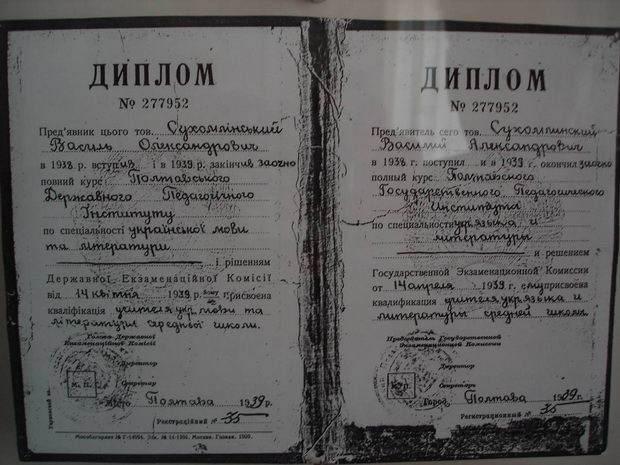 ДИПЛОМ
№ 277952
Пред'явник цього тов. Сухомлінський
Василь Олександрович
в 1938 р. вступив і в 1939 р. закінчив заочно
повний курс Полтавського
Державного Педагогічного
Інституту
по спеціальності української мови
та літератури
і рішенням
Державної Екзаменаційної Комісії
від 14 квітня 1939 р. присвоєна
кваліфікація учителя укр мови та
літератури середньої школи.
Голова Державної
Екзаменаційної Комісії
Директор
М. П.
Секретар
Місто Полтава 1939 р.
Реєстраційний № 35
ДИПЛОМ
№ 277952
Предъявитель сего тов. Сухомлинский
Василий Александрович
в 1938 г. поступил и в 1939 г. окончил заочно
полный курс Полтавского
Государственного Педагогического
Института
по специальности укр языка и
литературы
и решением
Государственной Экзаменационной Комиссии
от 14 апреля 1939 г. ему присвоена
квалификация учителя укр языка и
литературы средней школы.
Председатель Государственной
Экзаменационной Комиссии
Директор
Секретарь
Город Полтава 1939 г.
Регистрационный № 35